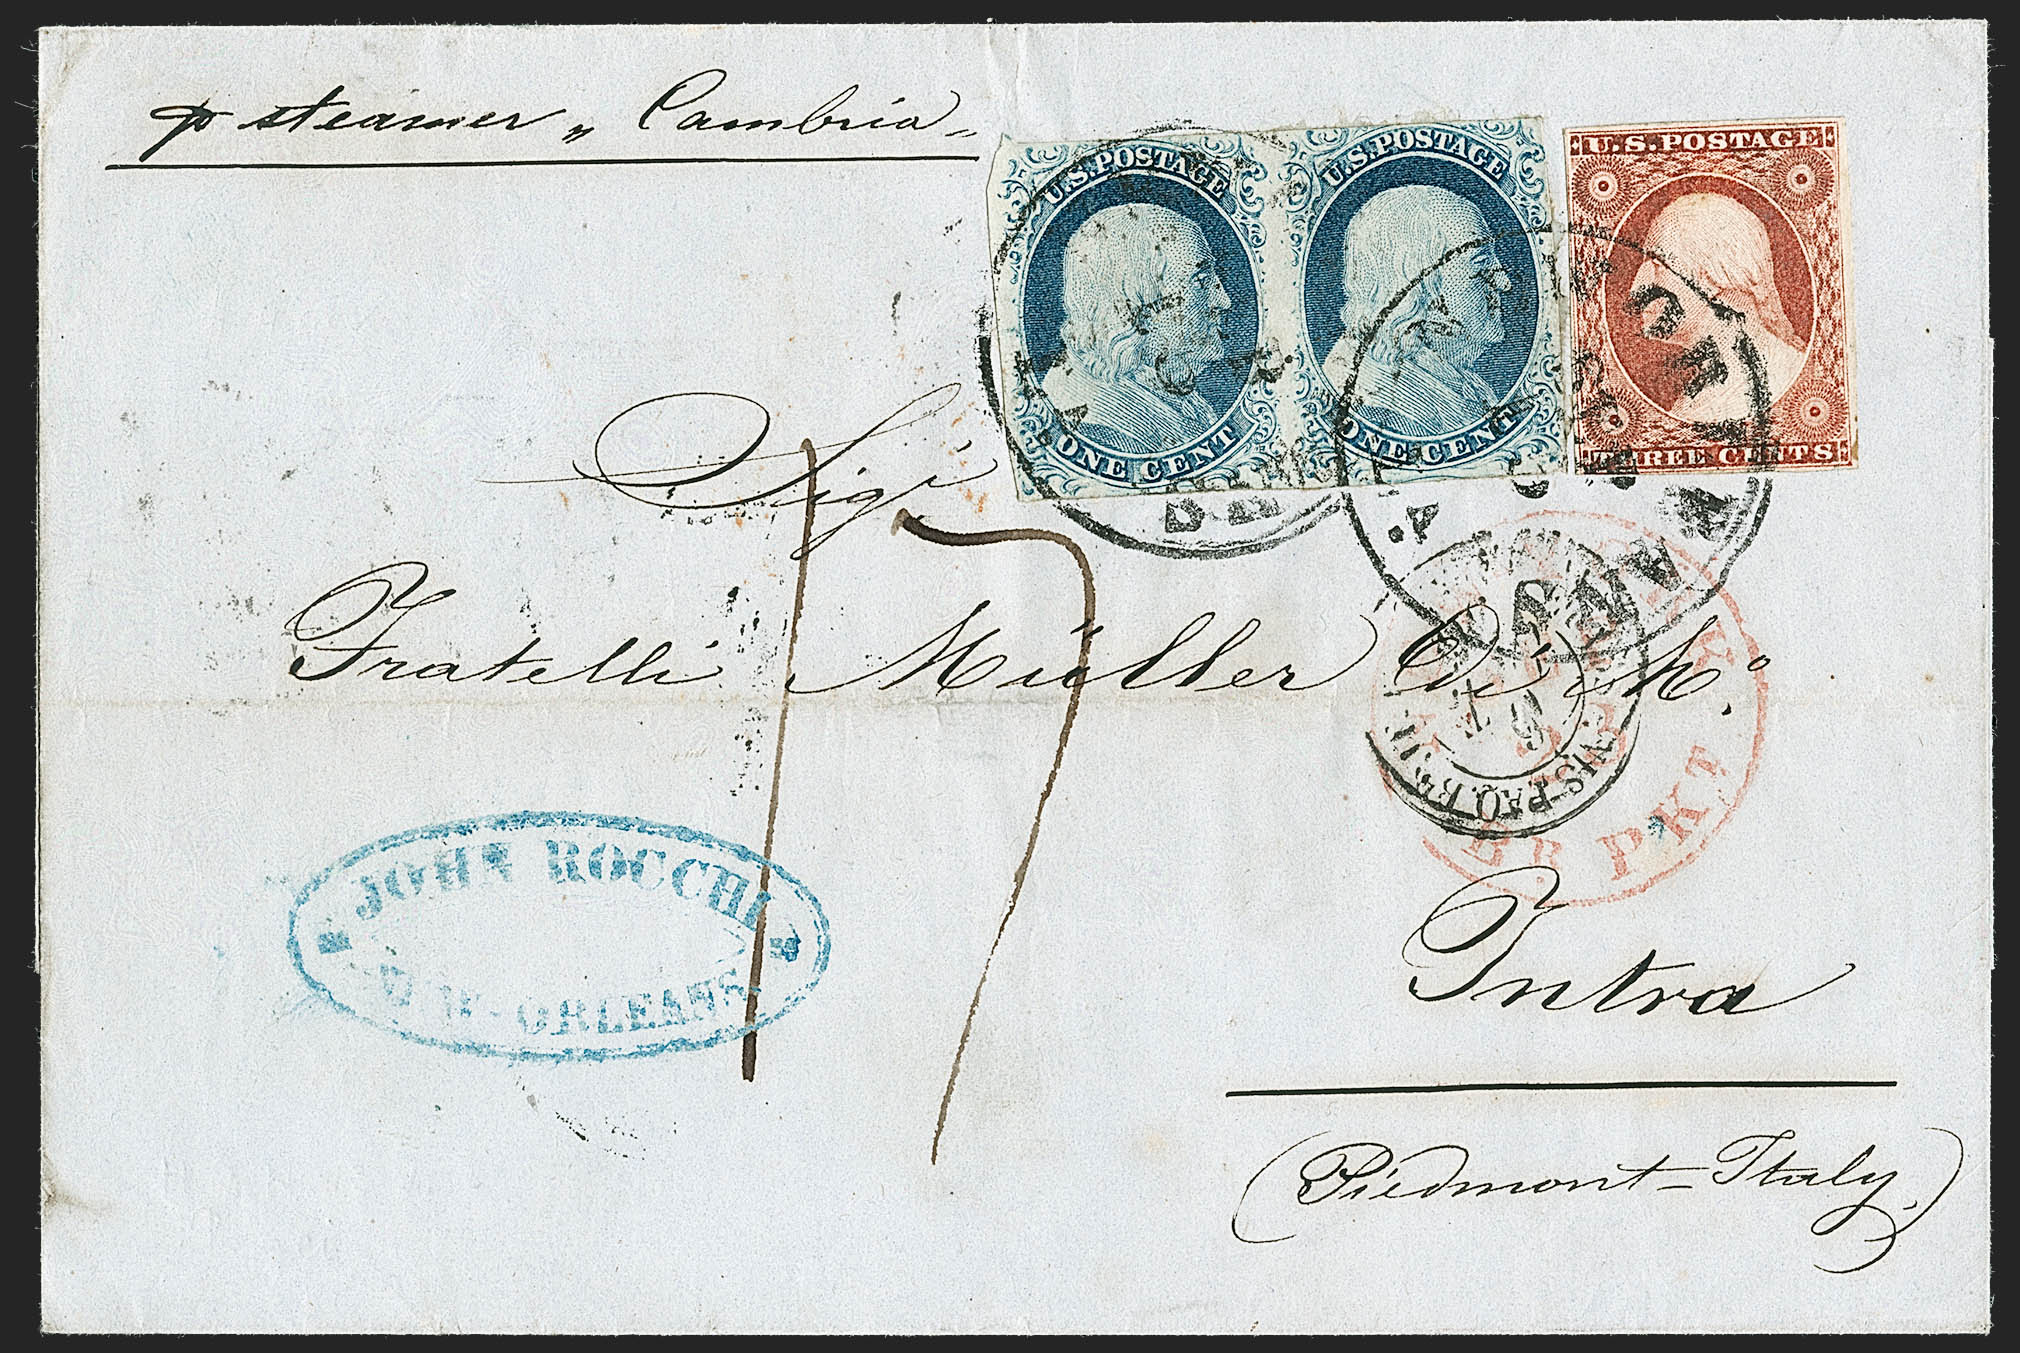 p steamer „ Cambria „
U.S. POSTAGE
ONE CENT
U.S. POSTAGE
ONE CENT
U.S. POSTAGE
THREE CENTS
Sigri
Fratelli Müller Di
17
BR. PKT.
JOHN ROCCHI
ORLEANS
Intra
(Piedmont = Italy.)